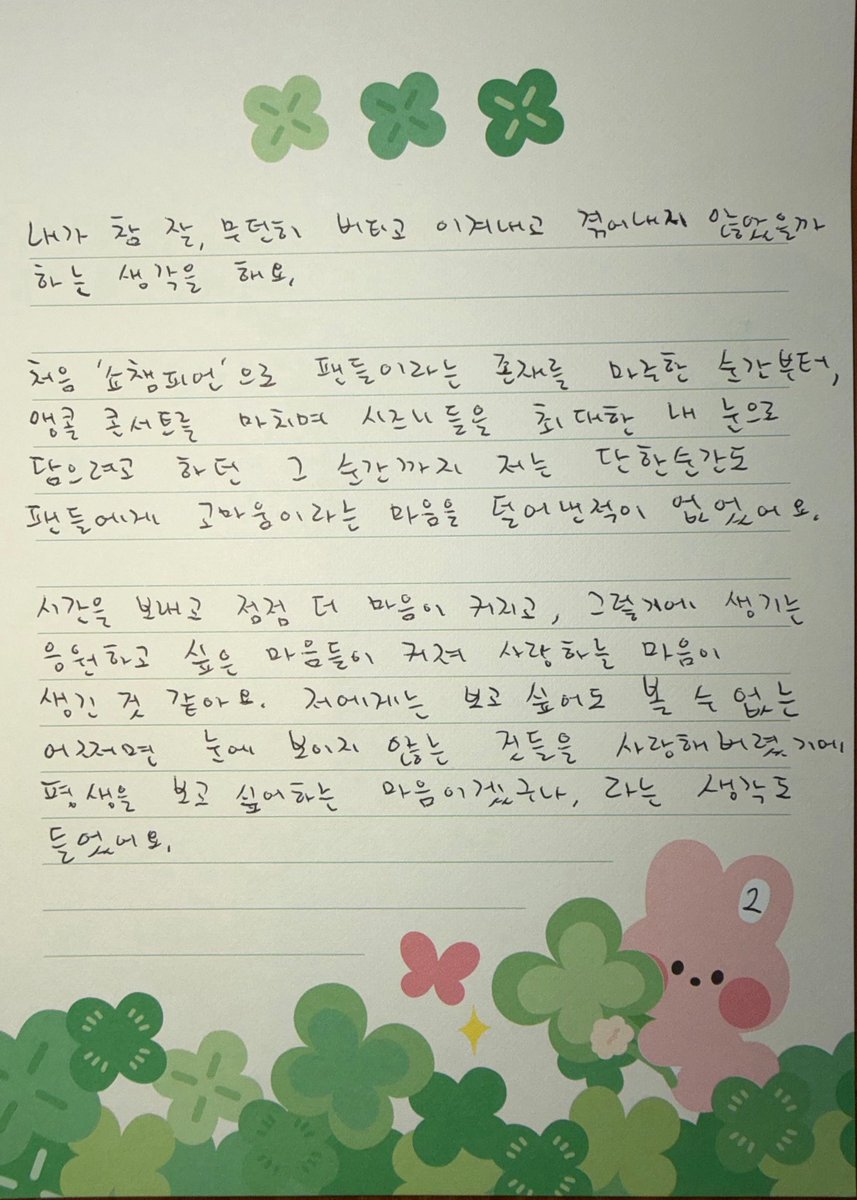 내가 참 잘, 무던히 버티고 이겨내고 겪어내지 않았을까
하는 생각을 해요.
처음 '쇼챔피언'으로 팬들이라는 존재를 마주한 순간부터,
앵콜 콘서트를 마치며 시즈니들을 최대한 내 눈으로
담으려고 하던 그 순간까지 저는 단한순간도
팬들에게 고마움이라는 마음을 덜어낸적이 없었어요.
시간을 보내고 점점 더 마음이 커지고, 그렇기에 생기는
응원하고 싶은 마음들이 커져 사랑하는 마음이
생긴 것 같아요. 저에게는 보고 싶어도 볼 수 없는
어쩌면 눈에 보이지 않는 것들을 사랑해버렸기에
평생을 보고 싶어하는 마음이겠구나, 라는 생각도
들었어요.
2